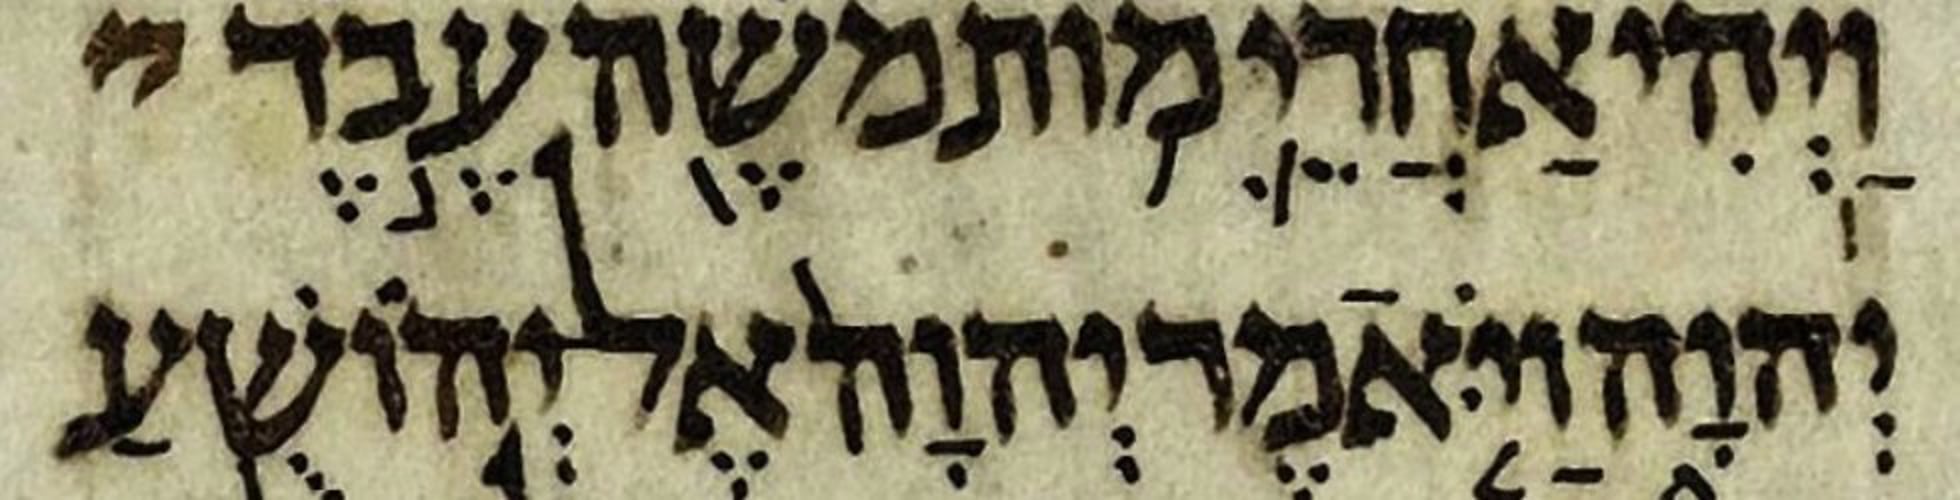 וַֽיְהִ֗י אַחֲרֵ֛י מ֥וֹת מֹשֶׁ֖ה עֶ֣בֶד
יְהוָ֑ה וַיֹּ֤אמֶר יְהוָה֙ אֶל־יְהוֹשֻׁ֣עַ